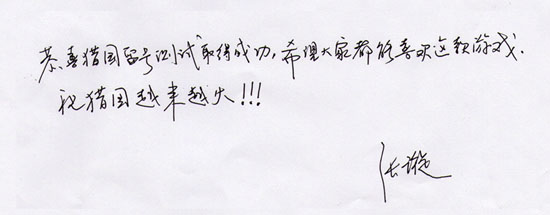 恭喜猎国留号测试取得成功,希望大家都能喜欢这款游戏.
祝猎国越来越火!!!
张璇